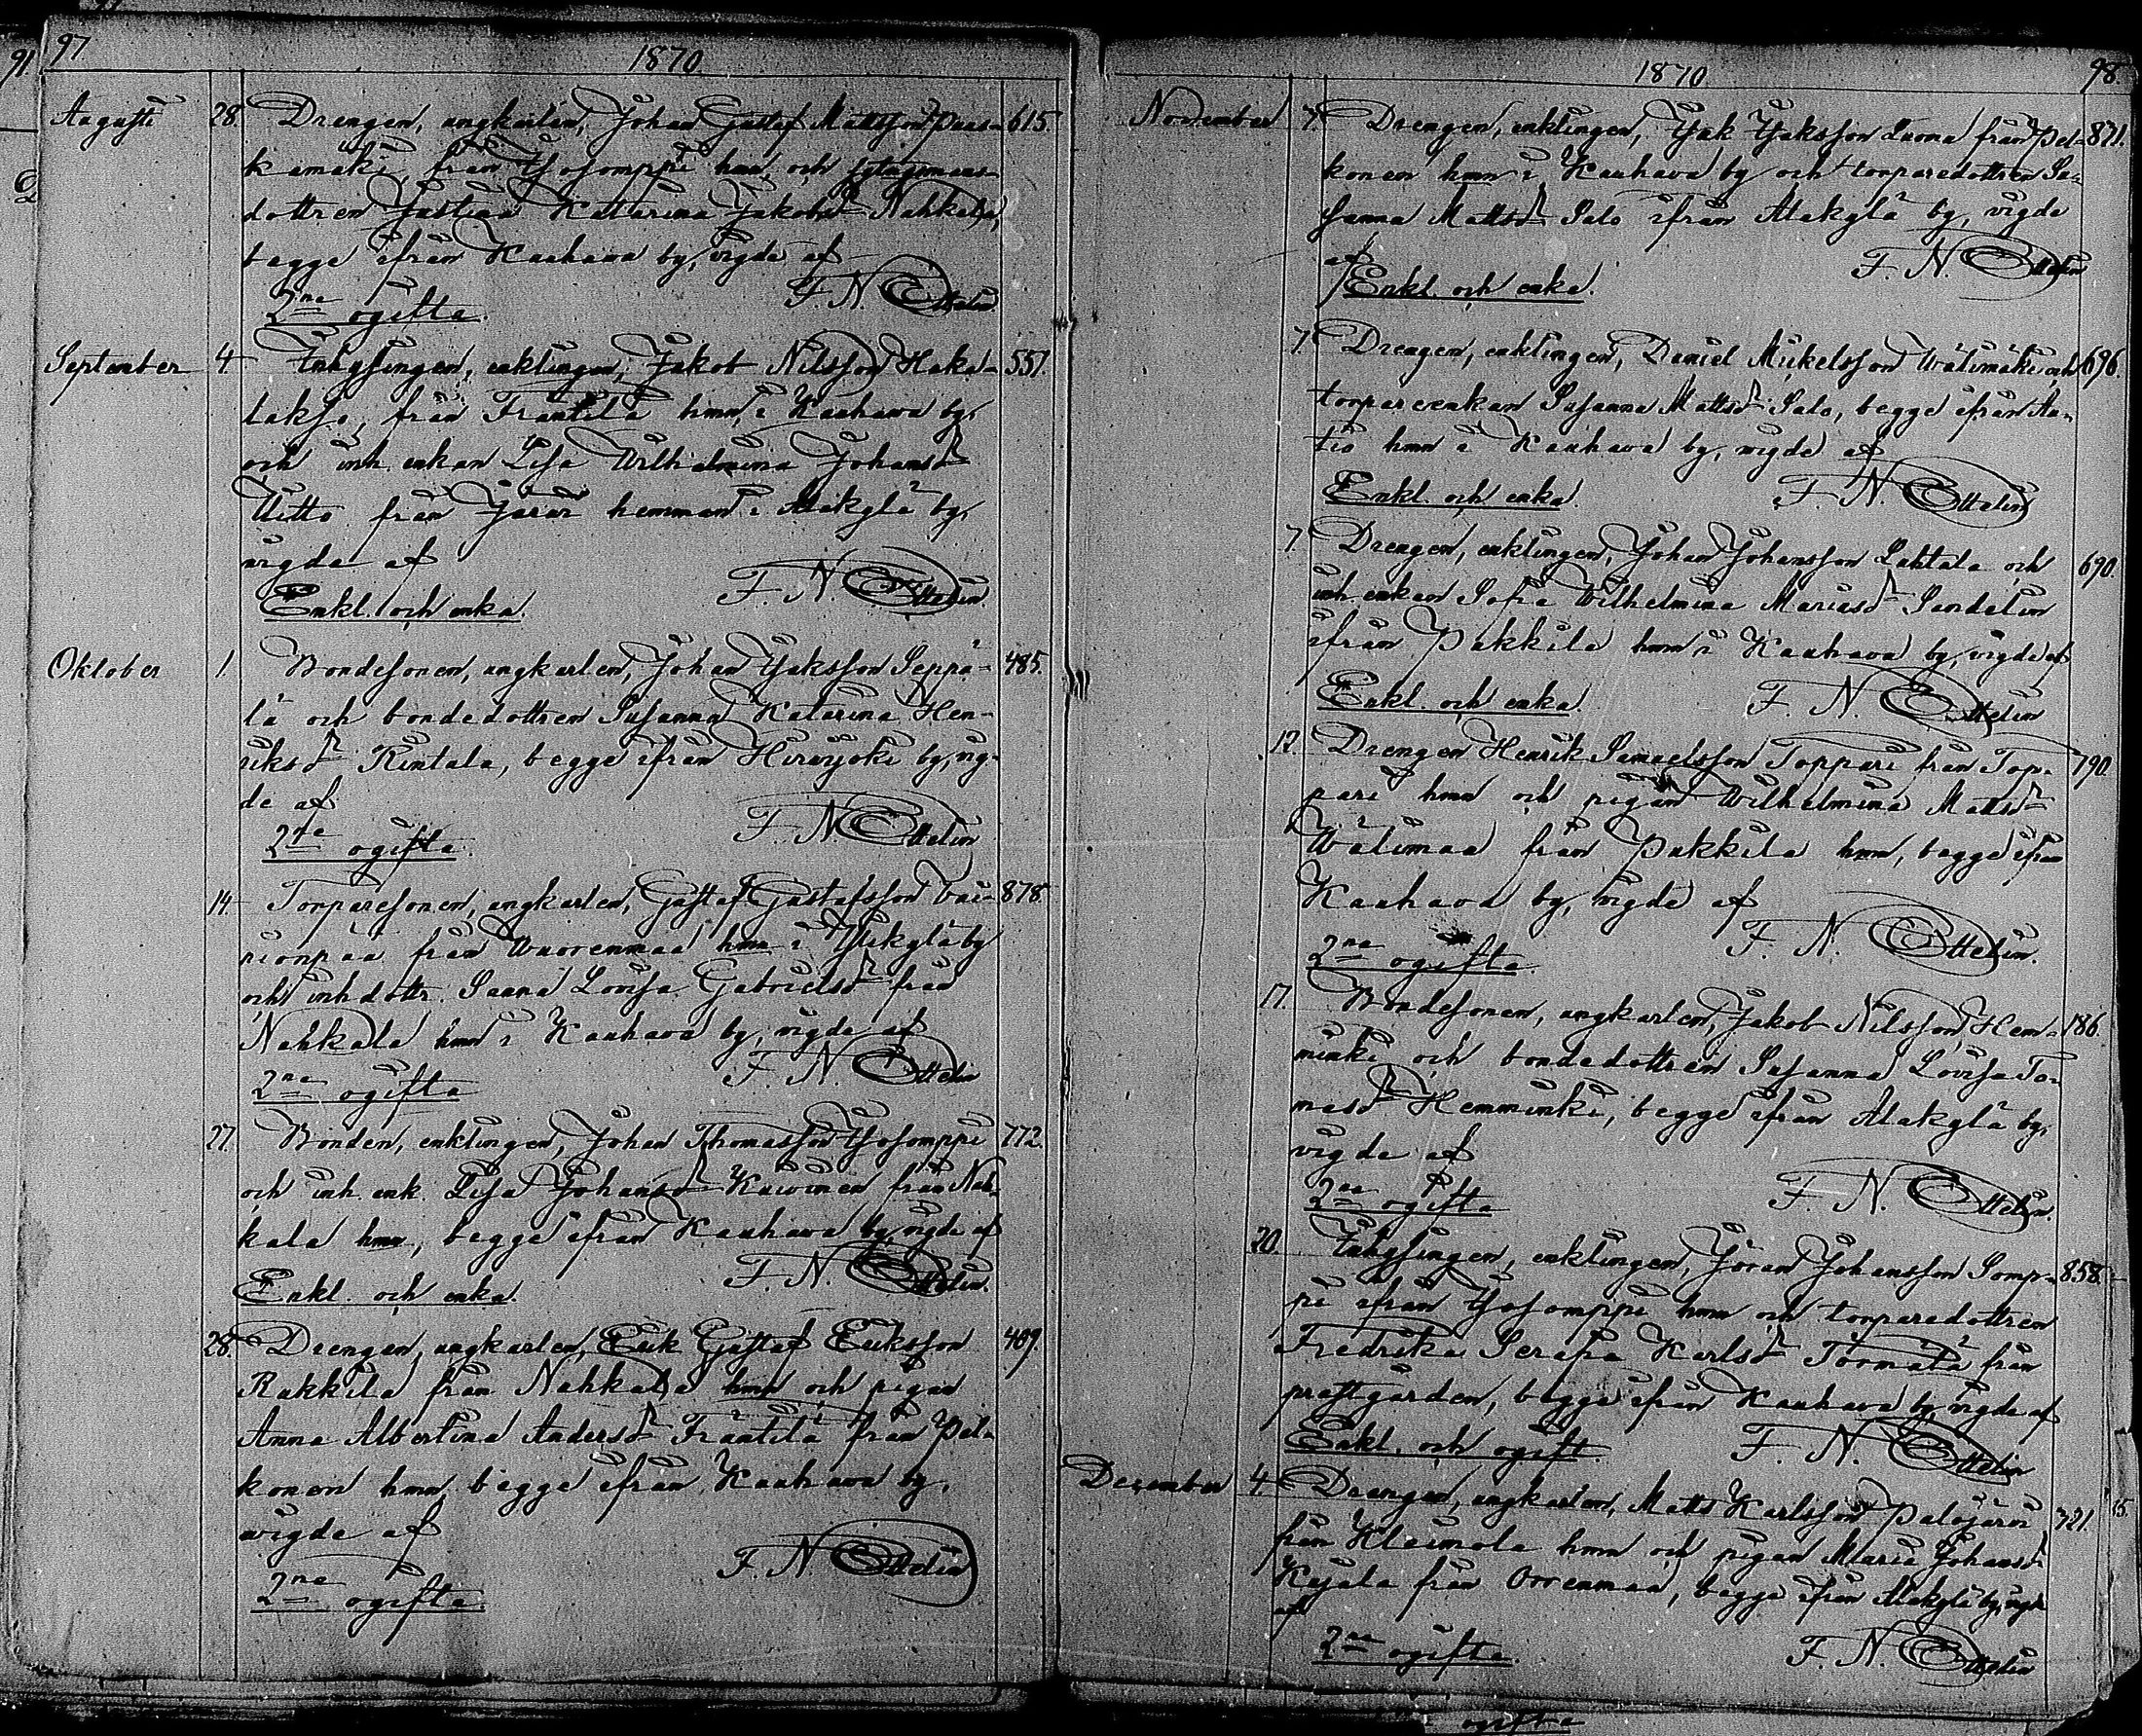 97
1870
Augusti 28. Drengen, ungkarlen, Johan Gustaf Mattsson Paas- 615.
kamäki, från Ysosomppi hmn, och sytningmans
dottren Justina Katarina Jakobsdr Nahkala,
begge ifrån Kauhava by, vigde af
F. N. Ottelin
2ne ogifta.
September 4. Inhysingen, enklingen, Jakob Nilsson Haka- 551.
lakso, från Frantila hmn i Kauhava by,
och inh. enkan Lisa Wilhelmina Johansdr
Uitto från Järvi hemman i Alakylä by,
vigde af
F. N. Ottelin.
Enkl. och enka.
Oktober 1. Bondesonen, ungkarlen, Johan Isaksson Seppä- 485.
lä och bondedottren Susanna Katarina Hen-
riksdr Rintala, begge ifrån Hirvijoki by, vig-
de af
F. N. Ottelin
2ne ogifta.
14. Torparesonen, ungkarlen, Gustaf Gustafsson Vai- 878.
rionpää från Wuorenmaa hmn i Ylikylä by
och inh dottr. Sanna Lovisa Gabrielsdr från
Nahkala hmn i Kauhava by, vigde af
F. N. Ottelin
2ne ogifta
27. Bonden, enklingen, Johan Thomasson Ysosomppi 772.
och inh. enk. Lisa Johansdr Kuivinen från Nah-
kala hmn, begge ifrån Kauhava by, vigde af
F. N. Ottelin.
Enkl. och enka.
28. Drengen, ungkarlen, Erik Gustaf Eriksson 409.
Rukkila från Nahkala hmn och pigan
Anna Albertina Andersdr Frantila från Pel-
konen hmn, begge ifrån Kauhava by,
vigde af
F. N. Ottelin
2ne ogifta.
1870
98
November 7. Drengen, enklingen, Isak Isaksson Luoma från Pel- 871.
konen hmn i Kauhava by och torparedottren Su-
sanna Mattsdr Salo ifrån Alakylä by, vigde
af F. N. Ottelin
Enkl. och enka.
7. Drengen, enklingen, Daniel Mickelsson Wälimäki och 696.
torpareenkan Susanna Mattsdr Salo, begge ifrån Au-
tio hmn i Kauhava by, vigde af
Enkl. och enka. F. N. Ottelin
7. Drengen, enklingen, Johan Johansson Lahtala och 690.
inh. enkan Sofia Wilhelmina Mariasdr Sandelin
ifrån Pukkila hmn i Kauhava by, vigde af
Enkl. och enka. F. N. Ottelin
12. Drengen Henrik Samuelsson Toppari från Top- 790.
pari hmn och pigan Wilhelmina Mattsdr
Wälimaa från Pukkila hmn, begge ifrån
Kauhava by, vigde af
2ne ogifta. F. N. Ottelin.
17. Bondesonen, ungkarlen, Jakob Nilsson Hem- 186.
minki och bondedottren Susanna Lovisa To-
masdr Hemminki, begge ifrån Alakylä by,
vigde af
2ne ogifta F. N. Ottelin.
20. Inhysingen, enklingen, Jöran Johansson Somp- 858.
pi ifrån Ysosomppi hmn och torparedottren
Fredrika Serafia Karlsdr Törmälä från
prestgården, begge ifrån Kauhava by, vigde af
Enkl. och ogift. F. N. Ottelin
December 4. Drengen, ungkarlen, Matts Karlsson Palojärvi 721.
från Kleimola hmn och pigan Maria Johansdr
Kujala från Orrenmaa, begge ifrån Alakylä by, vigde
af
2ne ogifta. F. N. Ottelin